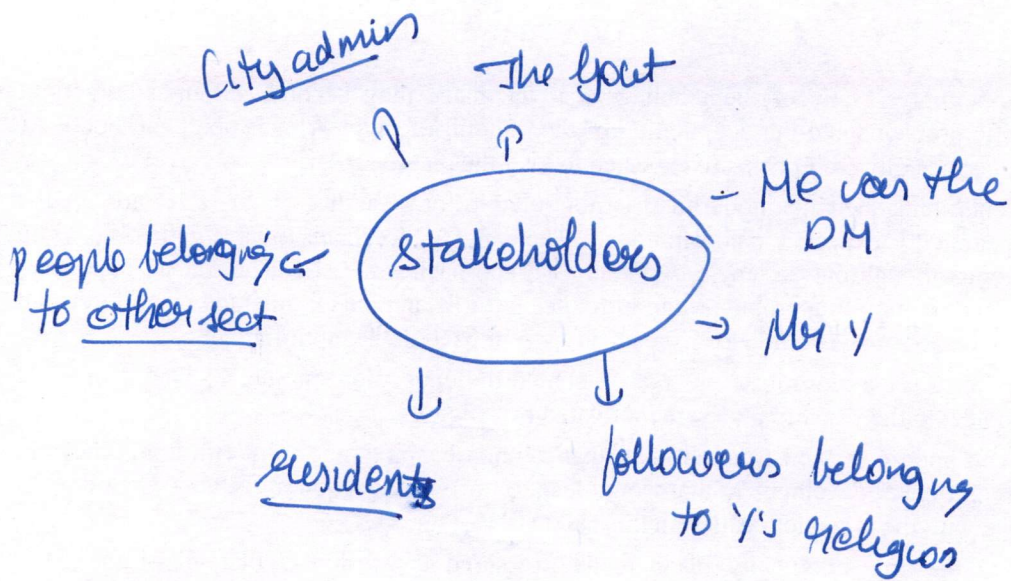 City admin
The Govt
stakeholders
- Me as the
DM
people belonging
to other sect
Mr Y
residents
followers belonging
to Y's religion